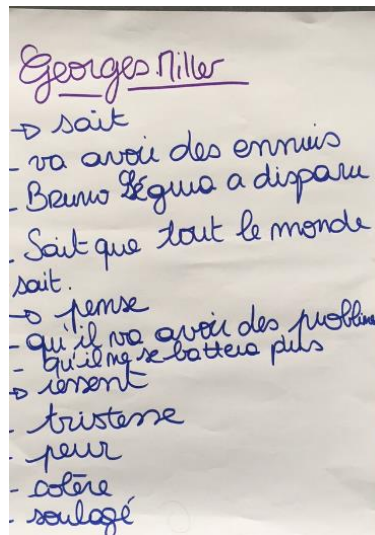 Georges Miller
→ sait
- va avoir des ennuis
- Bruno Ségura a disparu
- Sait que tout le monde
sait.
→ pense
- qu'il va avoir des problème
- qu'il ne se battera plus
→ ressent
- tristesse
- peur
- colère
- soulagé